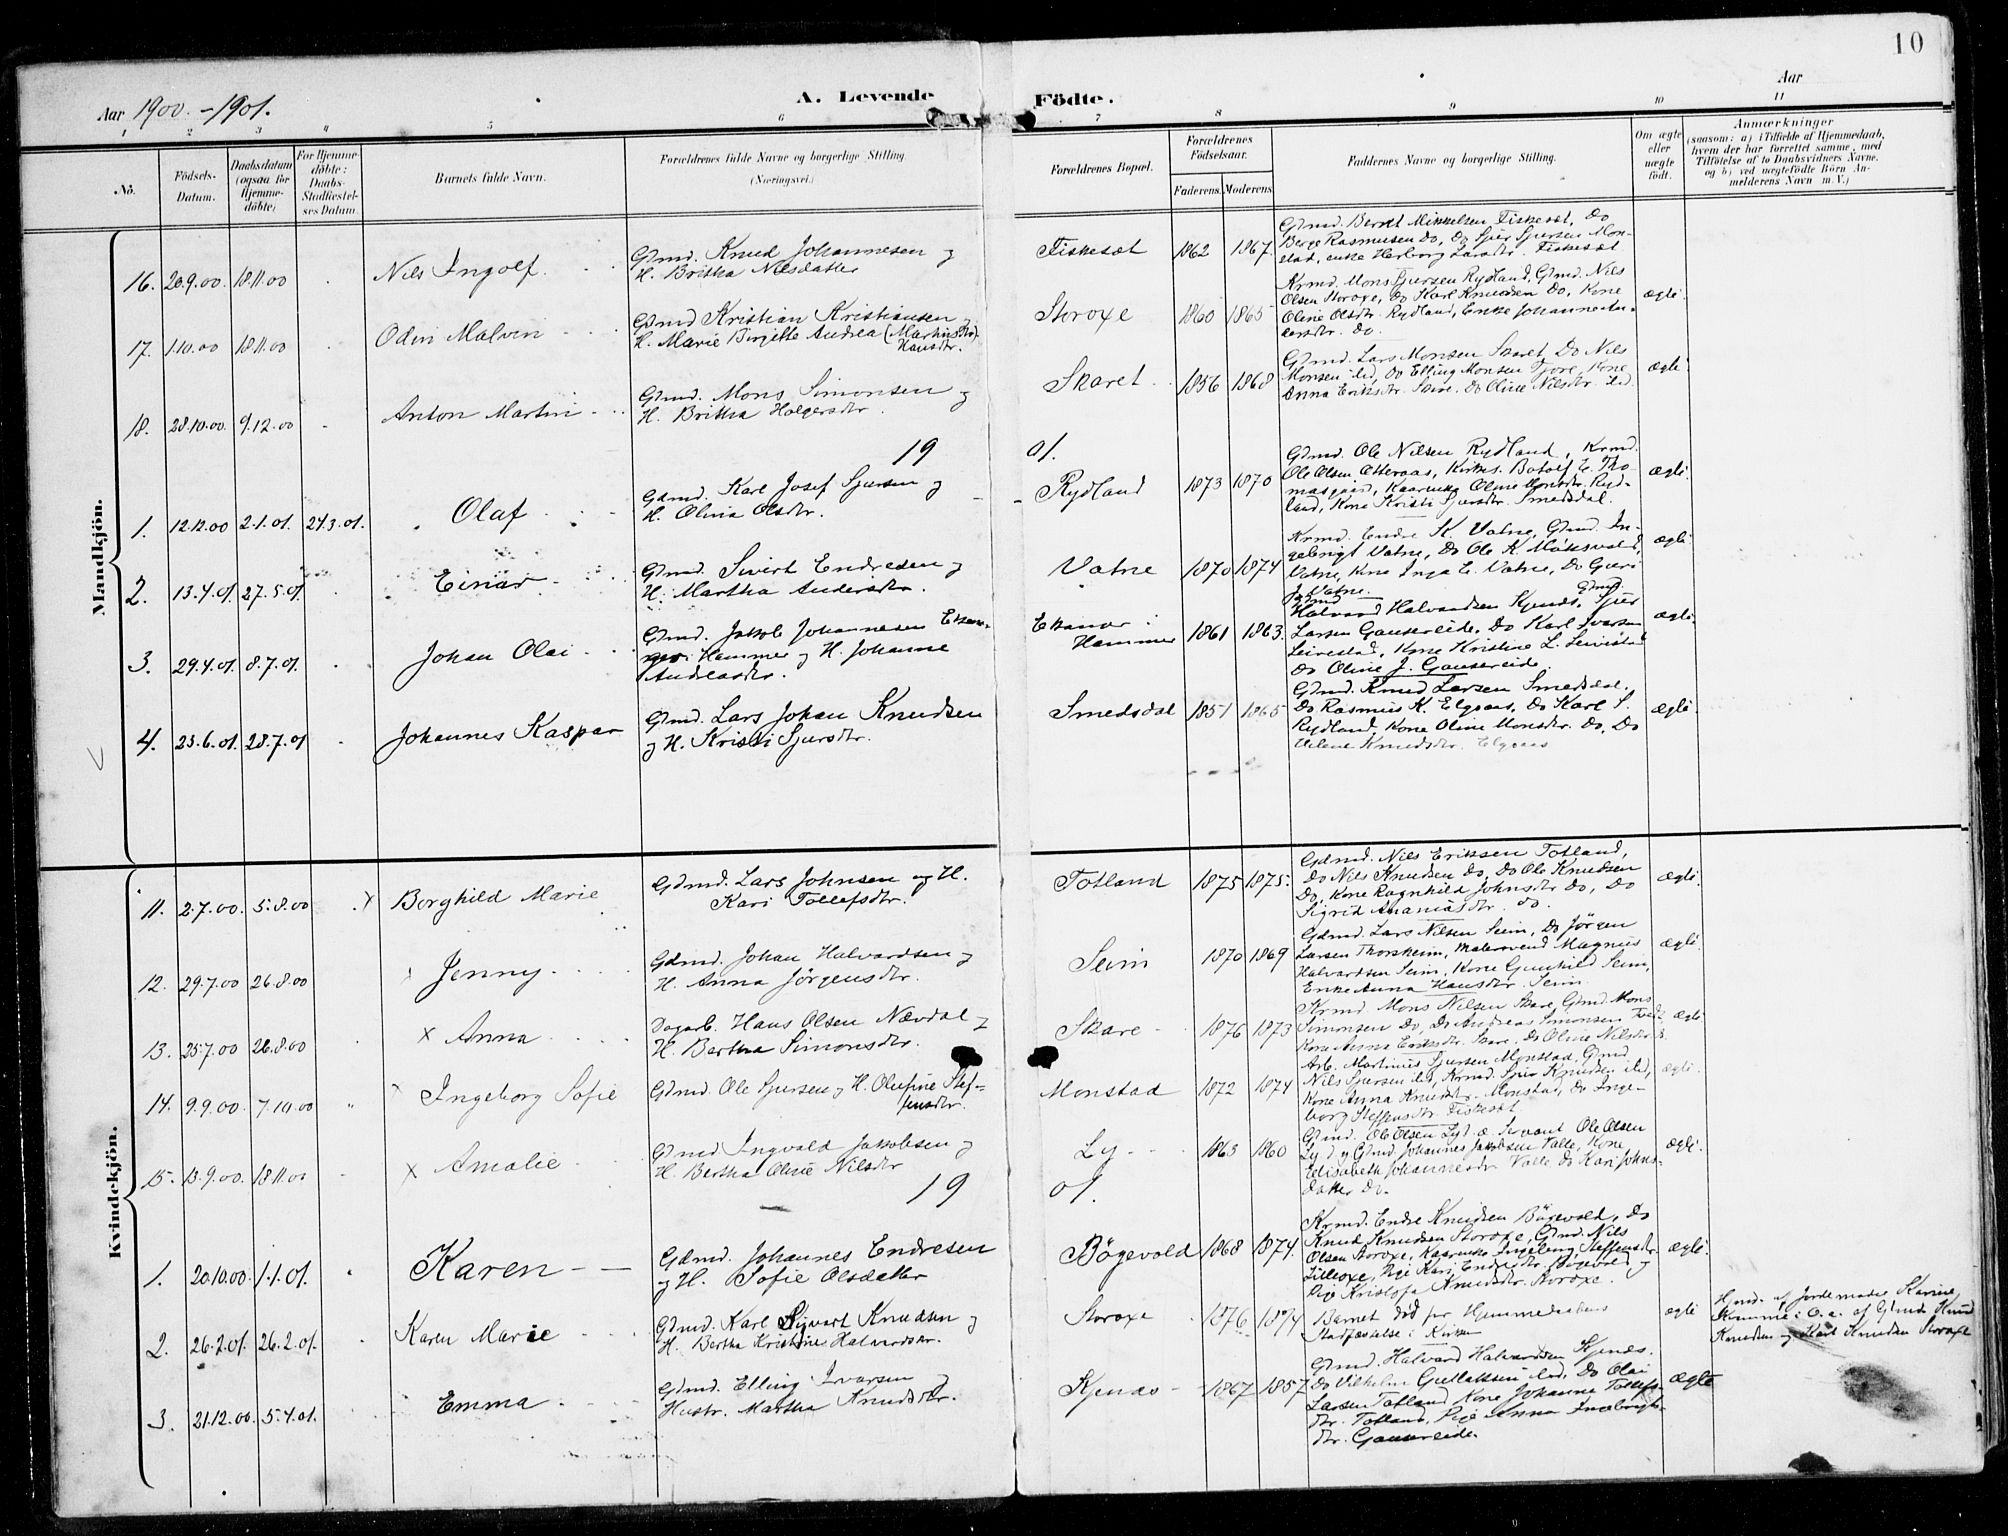 10
Aar 1900. - 1901.
A. Levende Födte.
Aar
1 2 3 4 5 6 7 8 9 10 11
No.
Födsels-Datum.
Daabsdatum (ogsaa for Hjemmedöbte)
For Hjemmedöbte: Daabs-Stadfæstelses Datum.
Barnets fulde Navn.
Forældrenes fulde Navne og borgerlige Stilling. (Næringsvei.)
Forældrenes Bopæl.
Forældrenes Födselsaar. Faderens. Moderens
Faddernes Navne og borgerlige Stilling.
Om ægte eller uægte födt.
Anmærkninger (saasom: a) i Tilfælde af Hjemmedaab, hvem der har forrettet samme, med Tilföielse af to Daabsvidners Navne, og b) ved uægtefödte Börn Anmelderens Navn m. V.)
Mandkjön.
16. 20.9.00 18.11.00 Nils Ingolf. Gdmd. Knud Johannesen og
H. Britha Nilsdatter
Fiskesæt 1862 1867
Gdmd. Berdt Mikkelsen Fiskesæt, Do
Berge Rasmusen Do, Do Sjur Sjursen Mon-
stad, enke Herborg Larsdtr. Fiskesæt
17. 1.10.00 18.11.00 Odin Malvin Gdmd Kristian Kristiansen og
H. Marie Birgitte Andrea (Martinsdtr) Hansdtr.
Storoxe 1860 1865
Krmd. Mons Sjursen Rydland, Gdmd. Nils
Olsen Storoxe, Do Karl Knudsen Do, Kone
Oline Olsdtr. Rydland, Enke Johanne An-
dersdtr. Do.
ægte.
18. 28.10.00 9.12.00 Anton Martin Gdmd. Mons Simonsen og
H. Britha Holgersdtr.
Skaret 1856 1868
Gdmd. Lars Monsen Skaret, Do Nils
Monsen ibd, Do Elling Monsen Fjore, Kone
Anna Eriksdtr. Skare, Do Oline Nilsdtr. ibd
ægte
19 01.
1. 12.12.00 2.1.01. 24.3.01. Olaf Gdmd. Karl Josef Sjursen og
H. Olina Olsdtr.
Rydland 1873 1870
Gdmd. Ole Nilsen Rydland, Krmd.
Ole Olsen Otteraas, Kirkes. Botolf E. Tho-
masgaard, Kaarenke Oline Monsdtr. Ryd-
land, Kone Kristi Sjursdtr. Smedsdal.
ægte
2. 13.4.01. 27.5.01. Einar Gdmd. Sivert Endresen og
H. Martha Andersdtr.
Vatne 1870 1874
Krmd. Endre K. Vatne, Gdmd. In-
gebrigt Vatne, Do Ole K. Möksvold,
Vatne, Kone Inga E. Vatne, Do Guri
J. Vatne.
ægte
3. 29.4.01. 8.7.01. Johan Olai Gdmd. Jakob Johannesen Ekan-
ger i Hammer og H. Johanne
Andreasdtr.
Ekanger i Hammer 1861 1863.
Gdmd Halvard Halvardsen Kjenes, Gdmd. Sjur
Larsen Gausereide, Do Karl Ivarsen
Leirestad, Kone Kristine L. Leirestad
Do Oline J. Gausereide.
ægte.
4. 23.6.01. 28.7.01 Johannes Kaspar Gdmd. Lars Johan Knudsen
og H. Kristi Sjursdtr.
Smedsdal 1851 1865
Gdmd. Knud Larsen Smedsdal.
Do Rasmus K. Elgaas, Do Karl S.
Rydland, Kone Oline Monsdtr. Do, Do
Velene Knudsdtr. Elgaas
ægte
Kvindekjön.
11. 2.7.00. 5.8.00 Borghild Marie Gdmd. Lars Johnsen og H.
Kari Tollefsdtr.
Totland 1875 1875.
Gdmd. Nils Eriksen Totland,
Do Nils Knudsen Do, Do Ole Knudsen
Do, Kone Ragnhild Johnsdtr Do, Do
Sigrid Ananiasdtr. do.
ægte.
12. 29.7.00 26.8.00 Jenny Gdmd. Johan Halvardsen og
H. Anna Jörgensdtr.
Seim 1870 1869
Gdmd. Lars Nilsen Seim, Do Jörgen
Larsen Thorsheim, Malersvend Magnus
Halvardsen Seim, Kone Gunhild Seim,
Enke Anna Hansdtr. Seim
ægte
13. 25.7.00 26.8.00 × Anna Dagarb. Hans Olsen Nævdal og
H. Bertha Simonsdtr.
Skare 1876 1873
Krmd Mons Nilsen Skare, Gdmd. Mons
Simonsen Do, Do Andreas Simonsen
Kone Anna Eriksdtr. Skare, Do Oline Nilsdtr
ægte
14. 9.9.00. 7.10.00 Ingeborg Sofie Gdmd Ole Sjursen og H. Olufine Stef-
fensdtr.
Monstad 1872 1874
Arb. Martinus Sjursen Monstad, Gdmd.
Nils Sjursen ibd, Krmd. Sjur Knudsen ibd,
Kone Anna Knudsdtr. Monstad, Do Inge-
borg Steffensdtr. Fiskesæt
ægte.
15. 13.9.00. 18.11.00 × Amalie Gdmd Ingvald Jakobsen og
H. Bertha Oline Nilsdtr
Ly 1863 1860
Gdmd. Ole Olsen Ly
Ly og Gdmd. Johannes Jakobsen Valle, Kone
Elisabeth Johannesdtr Valle, Do Kari Johns-
datter Do.
ægte.
19 01.
1. 20.10.00. 1.1.01. Karen Gdmd. Johannes Endresen
og H. Sofie Olsdatter
Bögevold 1868 1874.
Krmd. Endre Knudsen Bögevold, Do
Knud Knudsen Storoxe, Gdmd. Nils
Olsen Storoxe, Kaarenke Ingeborg Steffensdtr
Lilleoxe, Pige Kari Endresdtr Bögevold og
Pige Kristofa Knudsdtr. Storoxe.
ægte.
2. 26.2.01. 26.2.01. Karen Marie Gdmd. Karl Sivart Knudsen og
H. Bertha Kristine Halvardsdtr.
Storoxe 1876 1874
Barnet död för Hjemmedaabens
Stadfæstelse i Kirken
ægte
Hjmd. af Jordemoder Karine
af Gdmd. Knud
Knudsen og Karl Knudsen Storoxe
3. 21.12.00. 5.4.01. Emma Gdmd. Elling Ivarsen og
Hustr. Martha Knudsdtr.
Kjenæs 1867 1857
Gdmd. Halvard Halvardsen Kjenæs.
Do Vilhelm Gullaksen ibd, Do Olai
Larsen Totland, Kone Johanne Tollefs-
dtr. Totland, Pige Anna Ingebrigts-
dtr. Gausereide.
ægte